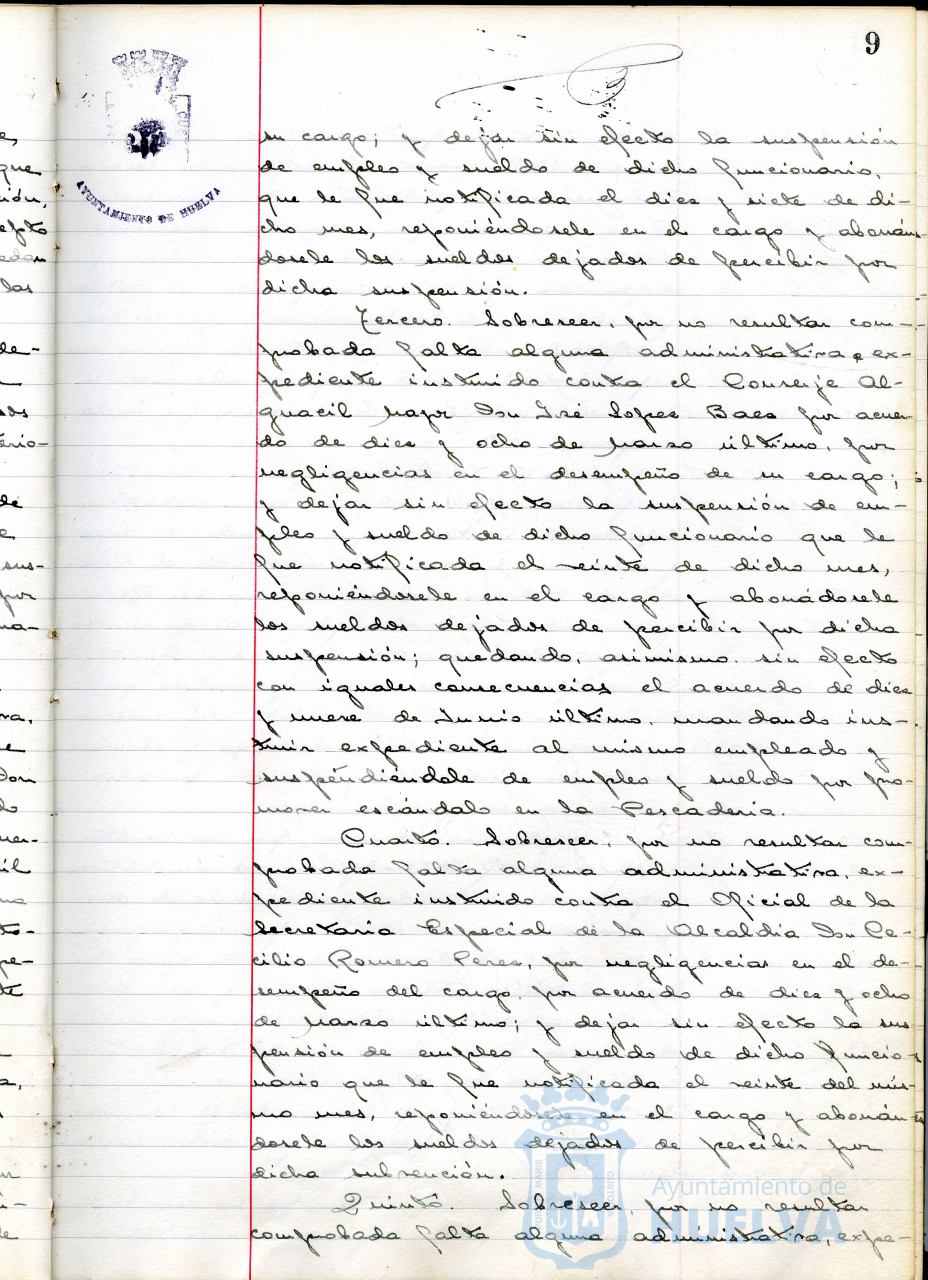 9
AYUNTAMIENTO DE HUELVA
su cargo; y dejar sin efecto la suspensión
de empleo y sueldo de dicho funcionario,
que le fue notificada el diez y siete de di-
cho mes, reponiéndosele en el cargo y abonán-
dosele los sueldos dejados de percibir por
dicha suspensión.
Tercero. Sobreseer, por no resultar com-
probada falta alguna administrativa, ex-
pediente instruido contra el Conserje Al-
guacil mayor Don José Lopez Baez por acuer-
do de diez y ocho de marzo último, por
negligencias en el desempeño de su cargo;
y dejar sin efecto la suspensión de em-
pleo y sueldo de dicho funcionario que le
fue notificada el veinte de dicho mes,
reponiéndosele en el cargo y abonádosele
los sueldos dejados de percibir por dicha
suspensión; quedando, asimismo, sin efecto
con iguales consecuencias el acuerdo de diez
y nueve de Junio último, mandando ins-
truir expediente al mismo empleado y
suspéndiéndole de empleo y sueldo por pro-
mover escándalo en la Pescadería.
Cuarto. Sobreseer, por no resultar com-
probada falta alguna administrativa, ex-
pediente instruido contra el Oficial de la
Secretaria Especial de la Alcaldía Don Ce-
cilio Romero Perez, por negligencias en el de-
sempeño del cargo, por acuerdo de diez y ocho
de marzo último; y dejar sin efecto la sus
pensión de empleo y sueldo de dicho funcio-
nario que le fue notificada el veinte del mis-
mo mes, reponiéndosele en el cargo y abonán-
dosele los sueldos dejados de percibir por
dicha subvención.
Quinto. Sobreseer, por no resultar
comprobada falta alguna administrativa, expe-
Ayuntamiento de
HUELVA